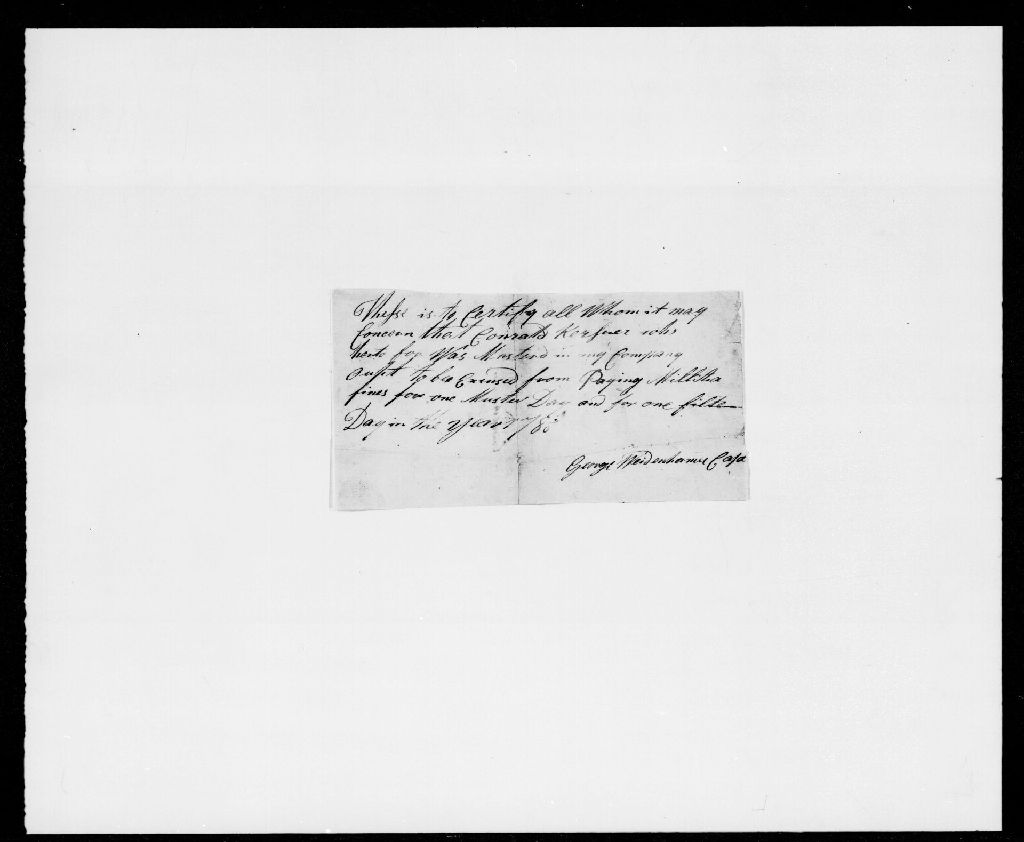 Thesse is to Certify all Whom it may
Concern that Conrath Kersner who
heito for Was Musterd in my Company
ouht to be Excused from Paying Millitia
fines for one Muster Day and for one filt
Day in the year 178
George Weidenhamer Capt